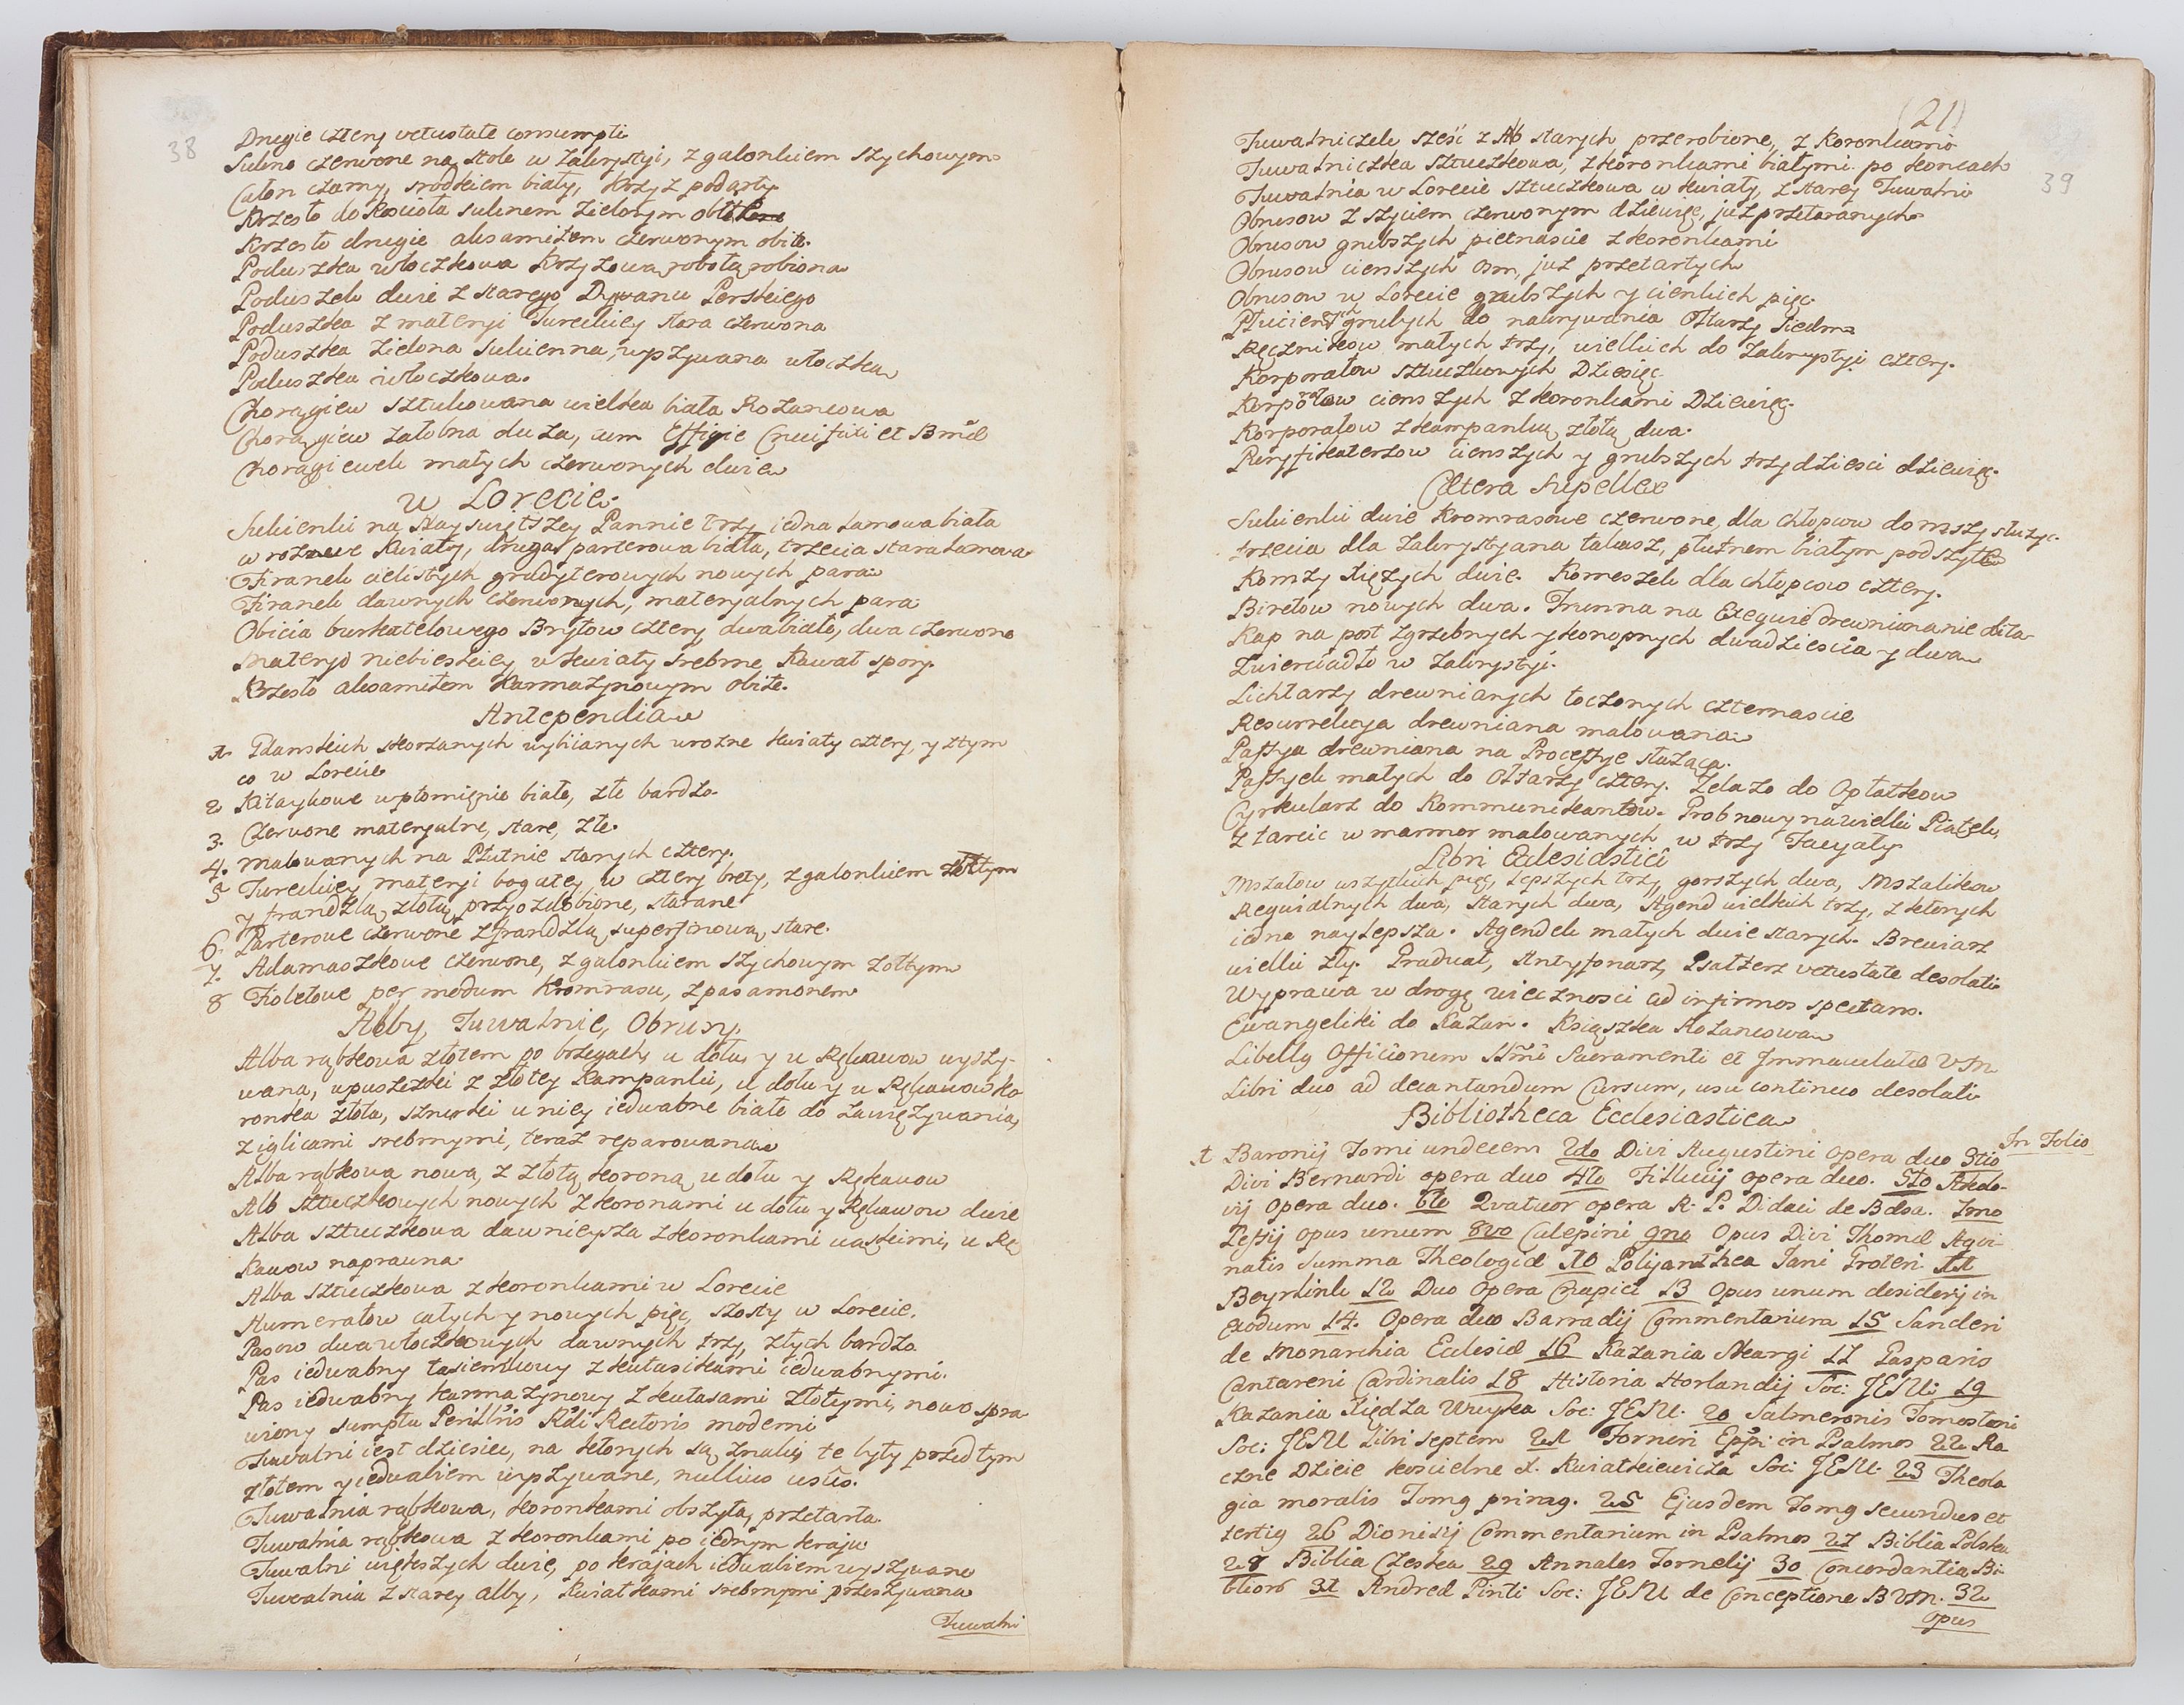 38
Drugie cztery vetustate consumpti
Sukno czerwone na stole w Zakrystyi, z galonkiem szychowym
Całun czarny, srodkiem biały, Krzyz podarty
Krzesło do Kosciola suknem zielonym
Krzesło drugie aksamitem czerwonym obite.
Poduszka włoczkowa Krzyzową robotą robiona
Poduszek dwie z starego Dywanu Perskiego
Poduszka z materyi Tureckiey stara czerwona
Poduszka zielona sukienna, wyszywana włoczką
Poduszka włoczkowa.
Chorągiew sztukowana wielka biała Rozancowa
Chorągiew załobna duza, cum Effigie Crucifixi et
Chorągiewek małych czerwonych dwie
w Lorecie.
Sukienki na Nayswiętszey Pannie trzy, iedna lamowa biała
w rozne Kwiaty, druga parterowa biała, trzecia stara lamowa
Firanek cielistych grudyterowych nowych para
Firanek dawnych czerwonych, materyalnych para
Obicia burkatelowego Brytow cztery dwa białe, dwa czerwone
Materyi niebieskiey w kwiaty srebrne Kawał spory.
Krzesło aksamitem Karmazynowym obite.
Antependia
1. Gdanskich skorzanych wybianych w rozne kwiaty cztery, y z tym
co w Lorecie
2 Kitaykowe w płomienie białe, złe bardzo.
3. Czerwone materyalne, stare, złe.
4. Malowanych na Płutnie starych cztery.
5 Tureckiey materyi bogatey w cztery brety, z galonkiem złotym
y frandzlą złotą przyozdobione, starane
6. Parterowe czerwone z frandzlą superfinową, stare.
7. Adamaszkowe czerwone, z galonkiem szychowym zołtym
8 Fioletowe per modum Kromrasu, z pasamonem
Alby, Tuwalnie, Obrusy.
Alba rąbkowa złotem po brzegach, u dołu y u Rękawow wyszy-
wana, wpuszczki z złotey Kampanki, u dołu y u Rękawow ko-
ronka złota, sznurki u niey iedwabne białe do zawięzywania,
z iglicami srebrnymi, teraz reparowana
Alba rąbkowa nowa, z złotą koroną u dołu y Rękawow
Alb sztuczkowych nowych z koronami u dołu y Rękawow dwie
Alba sztuczkowa dawnieysza z koronkami wąskimi, u Rę
kawow naprawna.
Alba sztuczkowa z koronkami w Lorecie
Humerałow całych y nowych pięc, szosty w Lorecie.
Pasow dwa włoczkowych dawnych trzy, złych bardzo
Pas iedwabny tasiemkowy z kutasikami iedwabnymi.
Pas iedwabny karmazynowy z kutasami złotymi, nowo spra-
wiony sumptu Perillris Rdi Rectoris moderni
Tuwalni iest dziesięc, na ktorych są znaki, te były przedtym
złotem y iedwabiem wyszywane, nullius usus.
Tuwalnia rąbkowa, koronkami obszyta, przetarta.
Tuwalnia rąbkowa z koronkami po iednym kraju
Tuwalni większych dwie, po krajach iedwabiem wyszywane
Tuwalnia z starey alby, Kwiatkami srebrnymi przeszywana
Tuwalni
(21)
39
Tuwalniczek sześć z Alb starych przerobione, z Koronkami
Tuwalniczka sztuczkowa, z koronkami białymi po koncach
Tuwalnia w Lorecie sztuczkowa w kwiaty, z starey Tuwalni
Obrusow z szyciem czerwonym dziewięc, juz przetaranych
Obrusow grubszych pietnascie z koronkami
Obrusow cienszych osm, juz przetartych
Obrusow w Lorecie grubszych y cienkich pięc.
Płucien grubych do nakrywania Ołtarzy siedm
Ręcznikow małych trzy, wielkich do zakrystyi cztery.
Korporałow sztuczkowych Dziesięc
Korporałow cienszych z koronkami Dziewięc.
Korporałow z kampanką złotą dwa.
Puryfikaterzow cienszych y grubszych trzydziesci dziewięc.
Cætera Supellex
Sukienki dwie Kromrasowe czerwone, dla chłopcow do mszy służyc.
trzecia dla zakrystyana tabasz, płutnem białym podszyte
Komzy Xięzych dwie. Komeszek dla chłopcow cztery.
Biretow nowych dwa. Trunna na Exequie drewniana nie bita
Kap na post zgrzebnych y konopnych dwadziescia y dwa
Zwierciadło w zakrystyi.
Lichtarzy drewnianych toczonych czternascie
Resurrekcya drewniana malowana
Passya drewniana na Processye słuząca.
Passyek małych do Ołtarzy cztery. Zelazo do Opłatkow
Cyrkularz do Kommunikantow. Grob nowy na wielki Piątek,
z tarcic w marmor malowanych w trzy Facyaty
Libri Ecclesiastici
Mszałow wszytkich pięc, lepszych trzy, gorszych dwa, Mszalikow
Requialnych dwa, starych dwa, Agend wielkich trzy, z ktorych
iedna naylepsza. Agendek małych dwie starych. Brewiarz
wielki zły. Graduał, Antyfonarz, Psałterz vetustate desolati
Wyprawa w drogę wiecznosci ad infirmos spectans.
Ewangeliki do Kazan. Xsiąszka Rozancowa
Libelly Officiorum SSmi Sacramenti et Immaculatæ V.M.
Libri duo ad decantandum Cursum, usu continuo desolati
Bibliotheca Ecclesiastica
In Folio
1 Baronij Tomi undecem 2do Divi Augustini opera duo 3tio
Divi Bernardi opera duo 4to Filliucij opera duo. 5to
vij Opera duo. 6to Qvatuor opera R. P. Didaci de Baeza. 7mo
Lessij opus unum 8vo Calepini 9no Opus Divi Thomæ Aqvi-
natis Summa Theologiæ 10 Polijanthea Jani Gruteri 11
Beyrlink 12 Duo Opera 13 Opus unum desiderij in
Exodum 14. Opera duo Barradij Commentarium 15 Sanderi
de Monarchia Ecclesiæ 16 Kazania Skargi 17 Gasparis
Cantareni Cardinalis 18 Historia Horlandij Soc: JESU. 19
Kazania Xiędza Wuyka Soc: JESU. 20 Salmeronis
Soc: JESU Libri septem 21 Forneri Eppi in Psalmos 22 Ro
czne Dzieie koscielne X. Kwiatkiewicza Soc: JESU. 23 Theolo
gia moralis Tomg primg. 25 Ejusdem Tomg secundus et
tertig 26 Dionisij Commentarium in Psalmos 27 Biblia Polska
28 Biblia Czeska 29 Annales Tornelij 30 Concordantia Bi-
bliorū 31 Andreæ Pinti Soc: JESU de Conceptione B.V.M. 32
opus